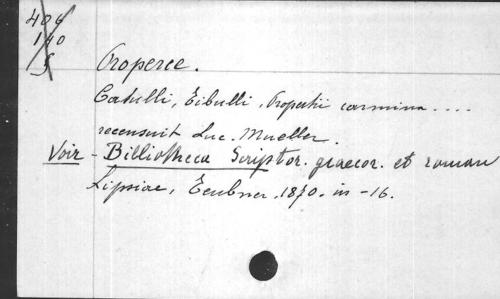 404
140
5
Properce.
Catulli, Tibulli, Propertii carmina ....
recensuit Luc. Mueller.
Voir - Bibliotheca Scriptor. graecor. et roman
Lipsiae, Teubner, 1870. in-16.